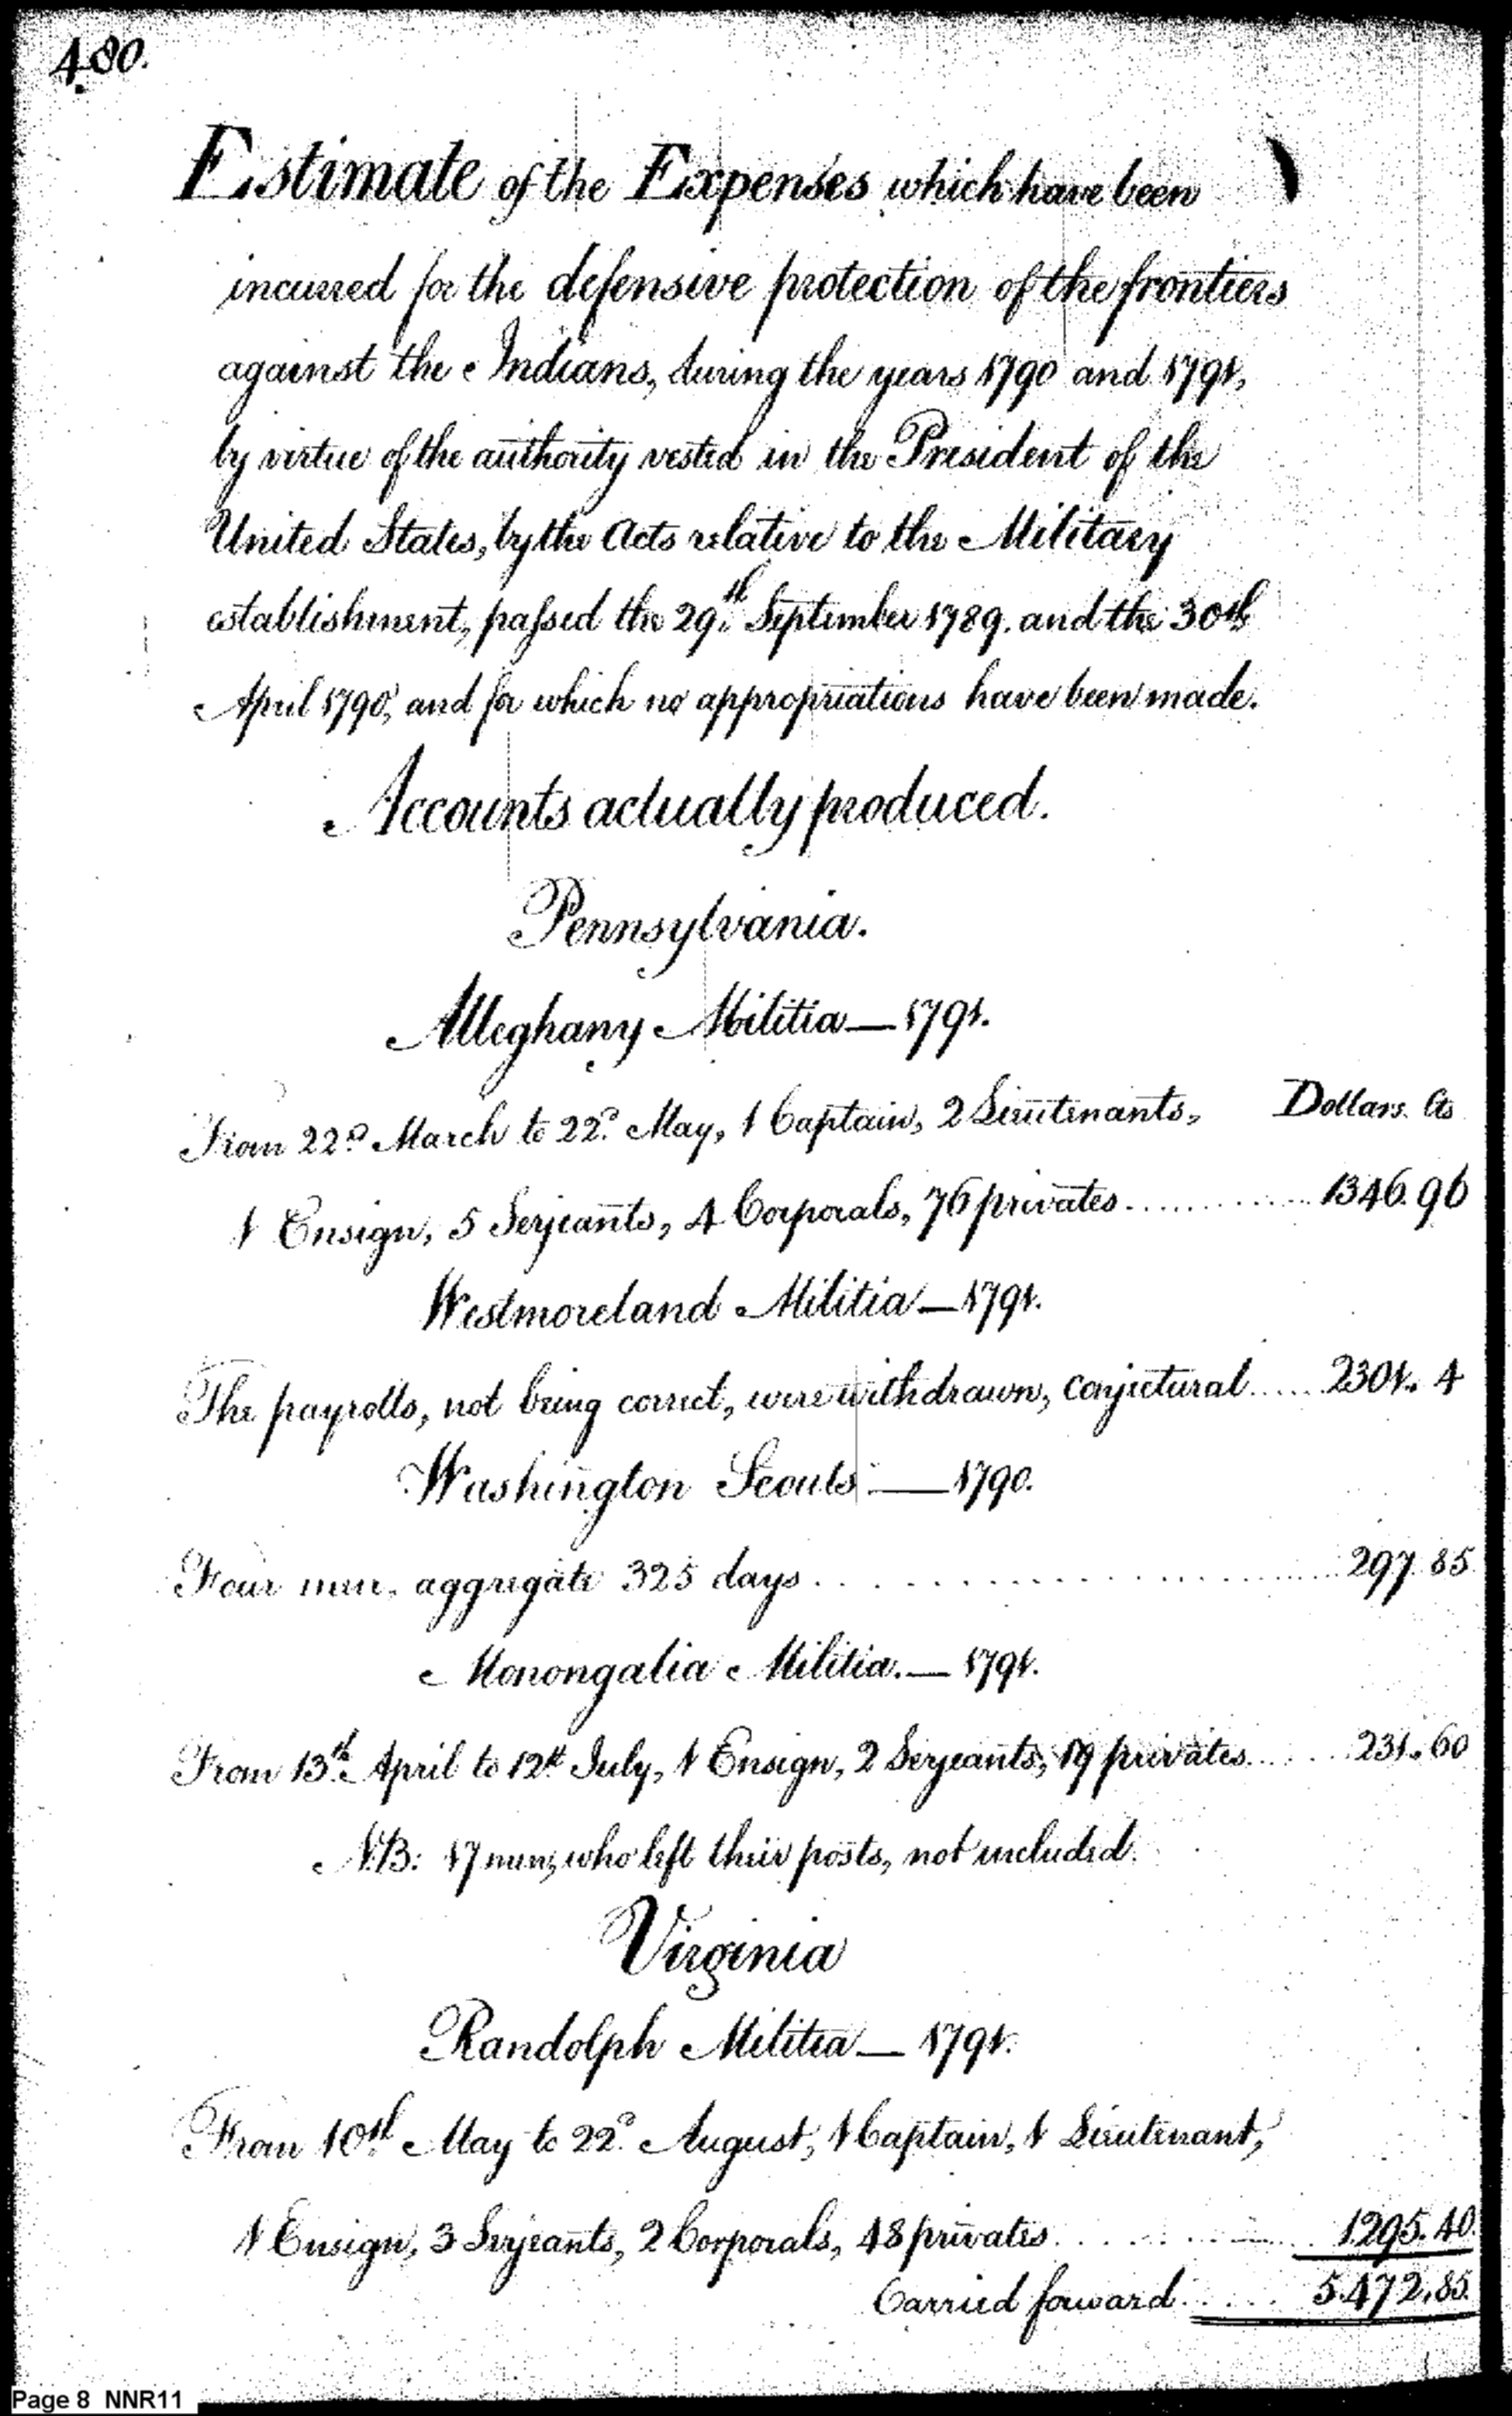 480.
Estimate of the Expenses which have been
incurred for the defensive protection of the frontiers
against the Indians, during the years 1790 and 1791,
by virtue of the authority vested in the President of the
United States, by the Acts relative to the Military
establishment, passed the 29th September 1789. and the 30th
April 1790, and for which no appropriations have been made.
Accounts actually produced.
Pennsylvania.
Alleghany Militia — 1791.
From 22d March to 22d May, 1 Captain, 2 Lieutenants, Dollars. Cts
1 Ensign, 5 Serjeants, 4 Corporals, 76 privates ............ 1346.96
Westmoreland Militia — 1791.
The payrolls, not being correct, were withdrawn, conjectural ..... 2301. 4
Washington Scouts — 1790.
Four men, aggregate 325 days .................... 297.85
Monongalia Militia. — 1791.
From 13th April to 12th July, 1 Ensign, 2 Serjeants, 19 privates ..... 231.60
N.B: 17 men, who left their posts, not included.
Virginia
Randolph Militia — 1791.
From 10th May to 22d August, 1 Captain, 1 Lieutenant,
1 Ensign, 3 Serjeants, 2 Corporals, 48 privates ........... 1295.40.
Carried forward ..... 5.472,85.
Page 8 NNR11